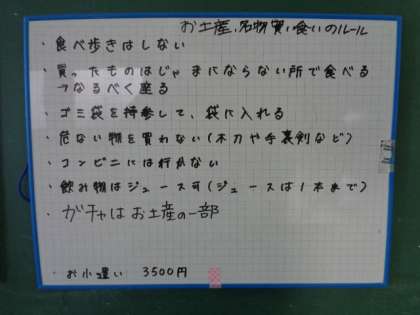 お土産、名物買い食いのルール
・食べ歩きはしない
・買ったものはじゃまにならない所で食べる
↳なるべく座る
・ゴミ袋を持参して、袋に入れる
・危ない物を買わない(木刀や手裏剣など)
・コンビニには行かない
・飲み物はジュース可(ジュースは1本まで)
・ガチャはお土産の一部
・お小遣い 3500円